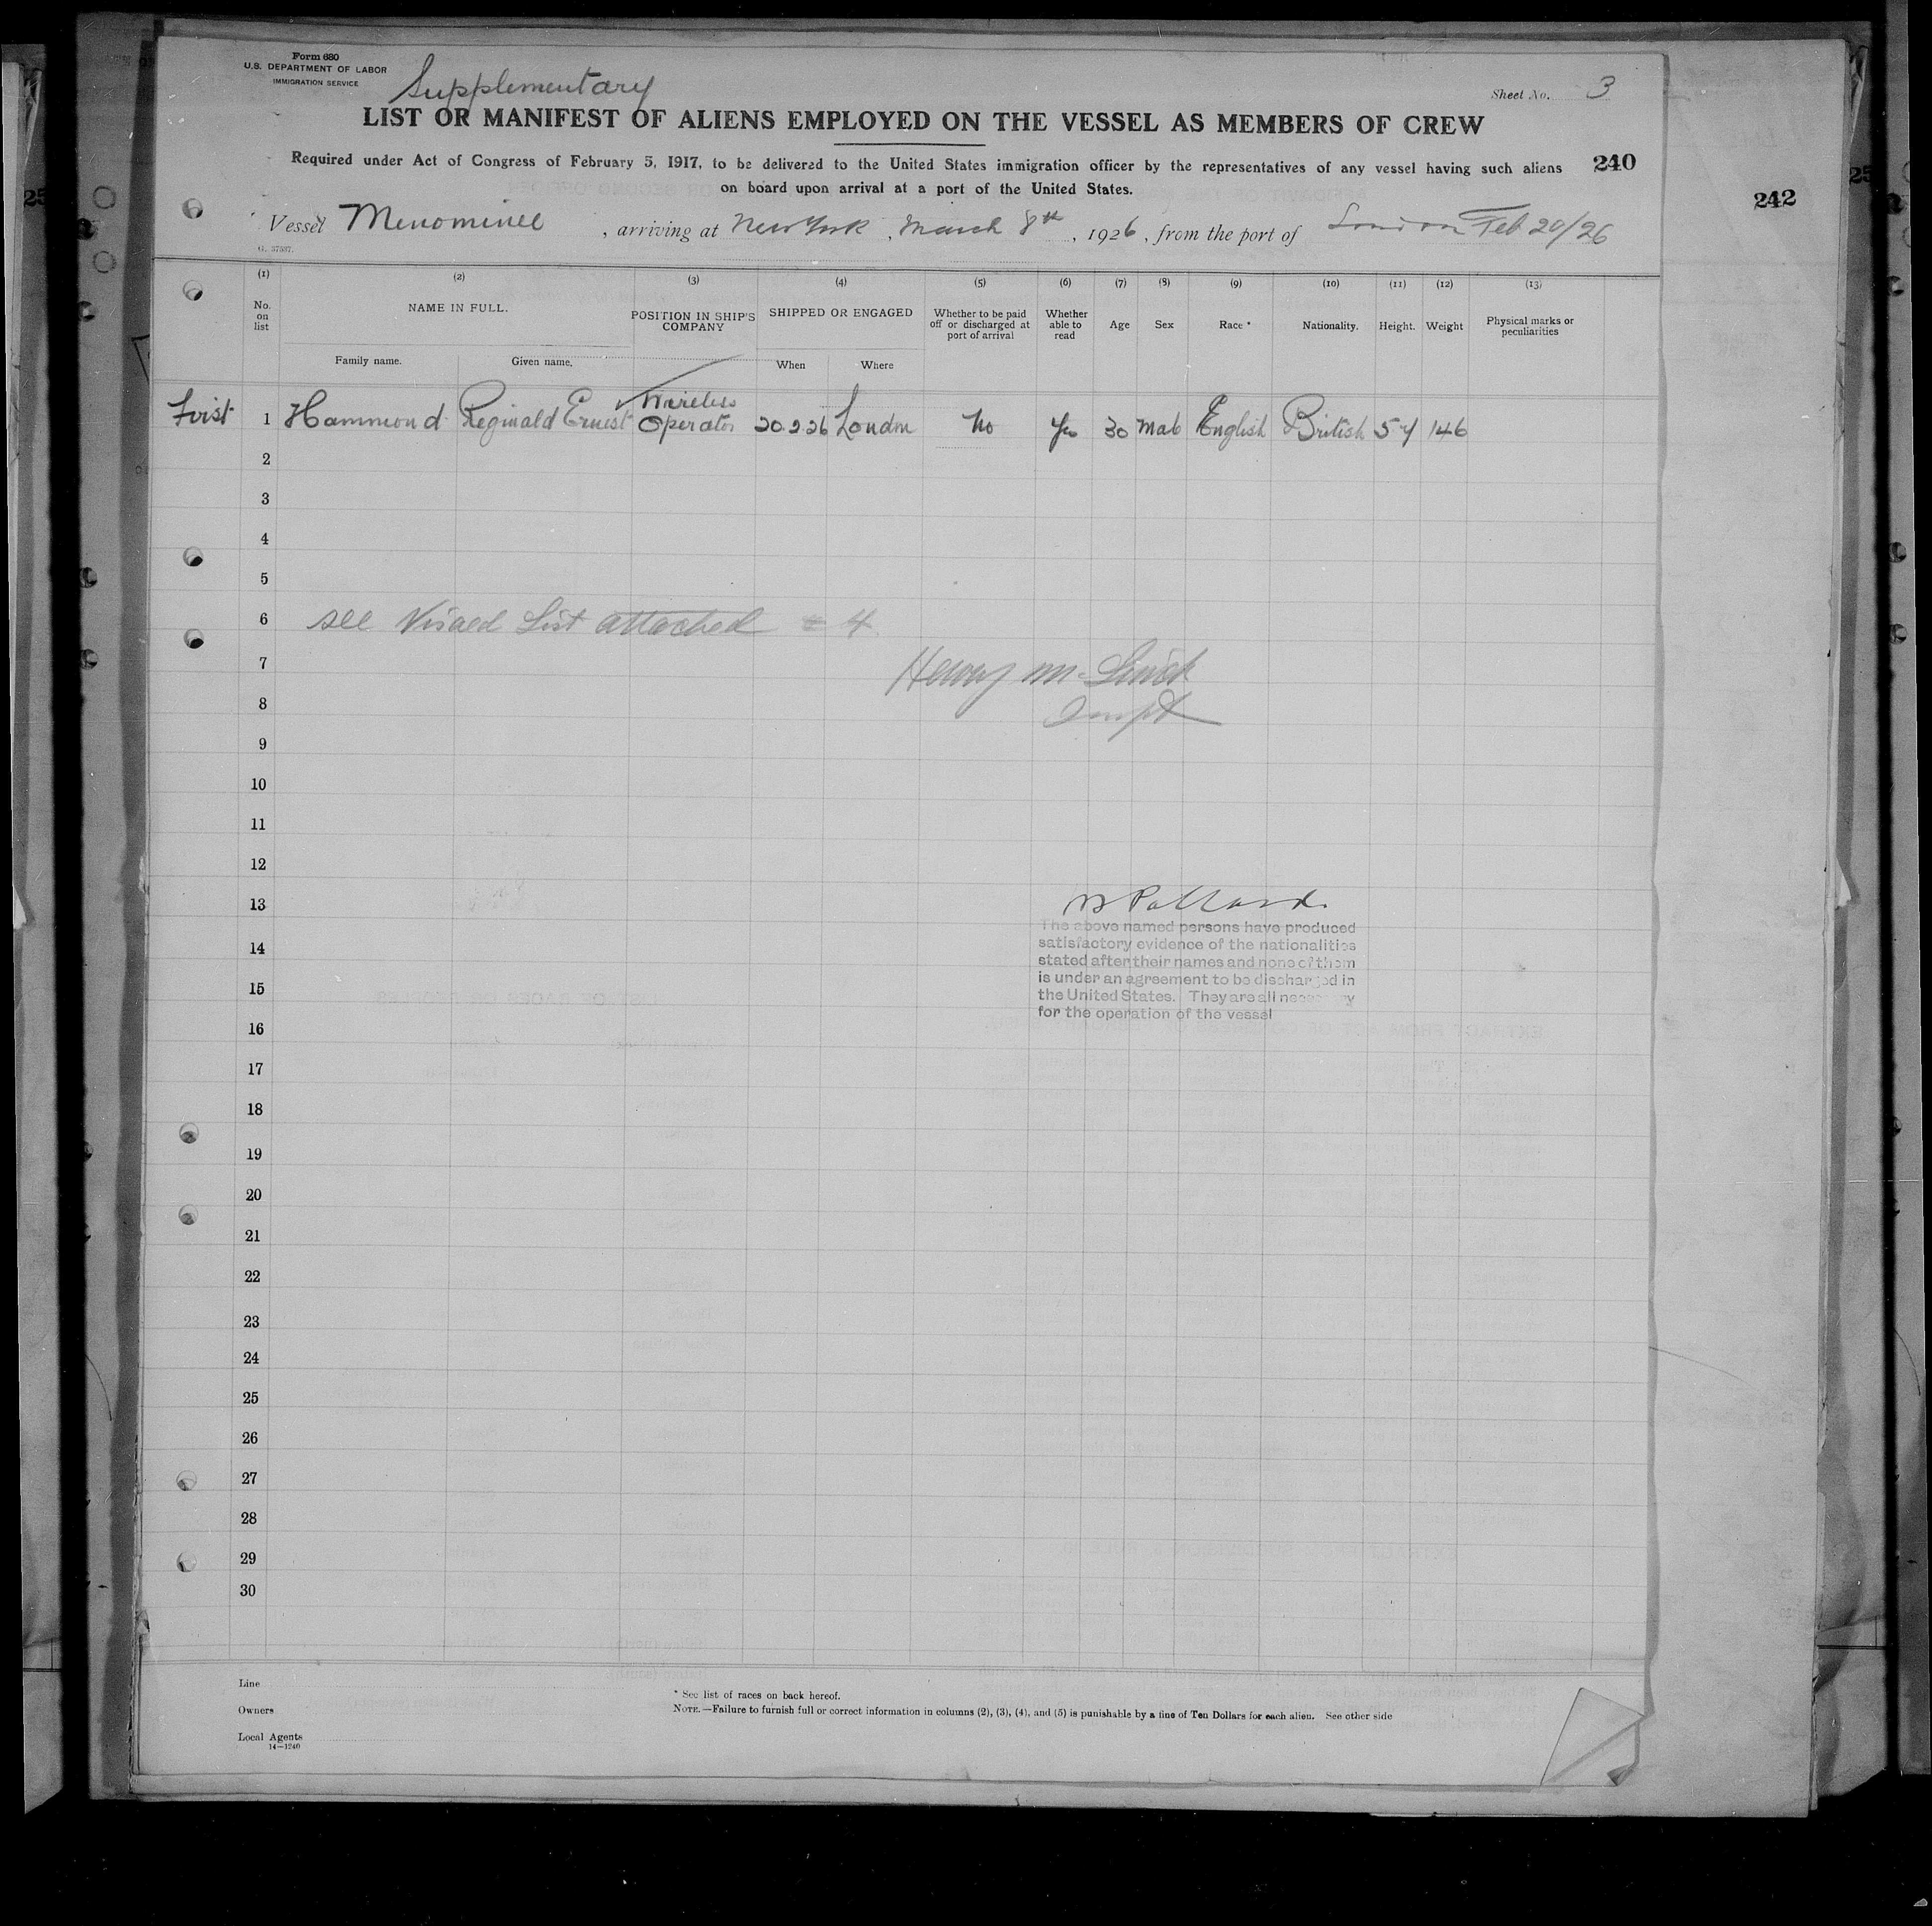 Form 680
U.S. DEPARTMENT OF LABOR
IMMIGRATION SERVICE
Supplementary
Sheet No. 3
LIST OR MANIFEST OF ALIENS EMPLOYED ON THE VESSEL AS MEMBERS OF CREW
Required under Act of Congress of February 5, 1917, to be delivered to the United States immigration officer by the representatives of any vessel having such aliens
on board upon arrival at a port of the United States.
240
242
Vessel Menominee, arriving at New York, March 8th, 1926, from the port of London Feb 20/26
G. 37537.
(1) (2) (3) (4) (5) (6) (7) (8) (9) (10) (11) (12) (13)
No. on list
NAME IN FULL.
Family name. Given name.
POSITION IN SHIP'S COMPANY
SHIPPED OR ENGAGED
When Where
Whether to be paid off or discharged at port of arrival
Whether able to read
Age
Sex
Race *
Nationality.
Height.
Weight
Physical marks or peculiarities
First 1 Hammond Reginald Ernest Wireless Operator 20.2.26 London No Yes 30 Male English British 5-7 146
2
3
4
5
6 see Visaed List attached = 4
7 Henry M.
8 Inspt
9
10
11
12
13 Pollard.
The above named persons have produced
14 satisfactory evidence of the nationalities
stated after their names and none of them
is under an agreement to be discharged in
15 the United States. They are all necessary
16 for the operation of the vessel
17
18
19
20
21
22
23
24
25
26
27
28
29
30
Line
Owners
Local Agents
14—1240
* See list of races on back hereof.
NOTE.—Failure to furnish full or correct information in columns (2), (3), (4), and (5) is punishable by a fine of Ten Dollars for each alien. See other side